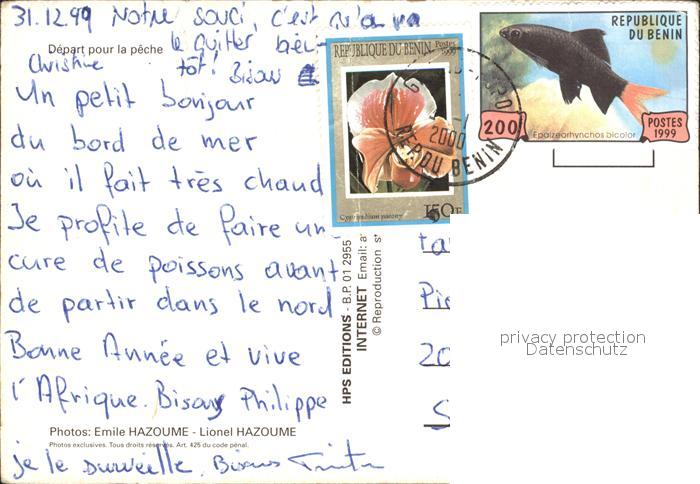 31.12.99 Notre souci, c'est qu'on va
le quitter bien-
Départ pour la pêche
Christine tôt! Bisous
Un petit bonjour
du bord de mer
où il fait très chaud
Je profite de faire un-
cure de poissons avant
de partir dans le nord
Bonne Année et vive
l'Afrique. Bisous Philippe
Photos: Emile HAZOUME - Lionel HAZOUME
Photos exclusives. Tous droits réservés. Art. 425 du code pénal.
je le surveille. Bisous
HPS EDITIONS - B.P. 01 2955
INTERNET Email: a
© Reproduction s
REPUBLIQUE DU BENIN Postes 1999
150F
2000
REP. DU BENIN
REPUBLIQUE
DU BENIN
200
Epalzeorhynchos bicolor
POSTES
1999
Pie
20
S
privacy protection
Datenschutz